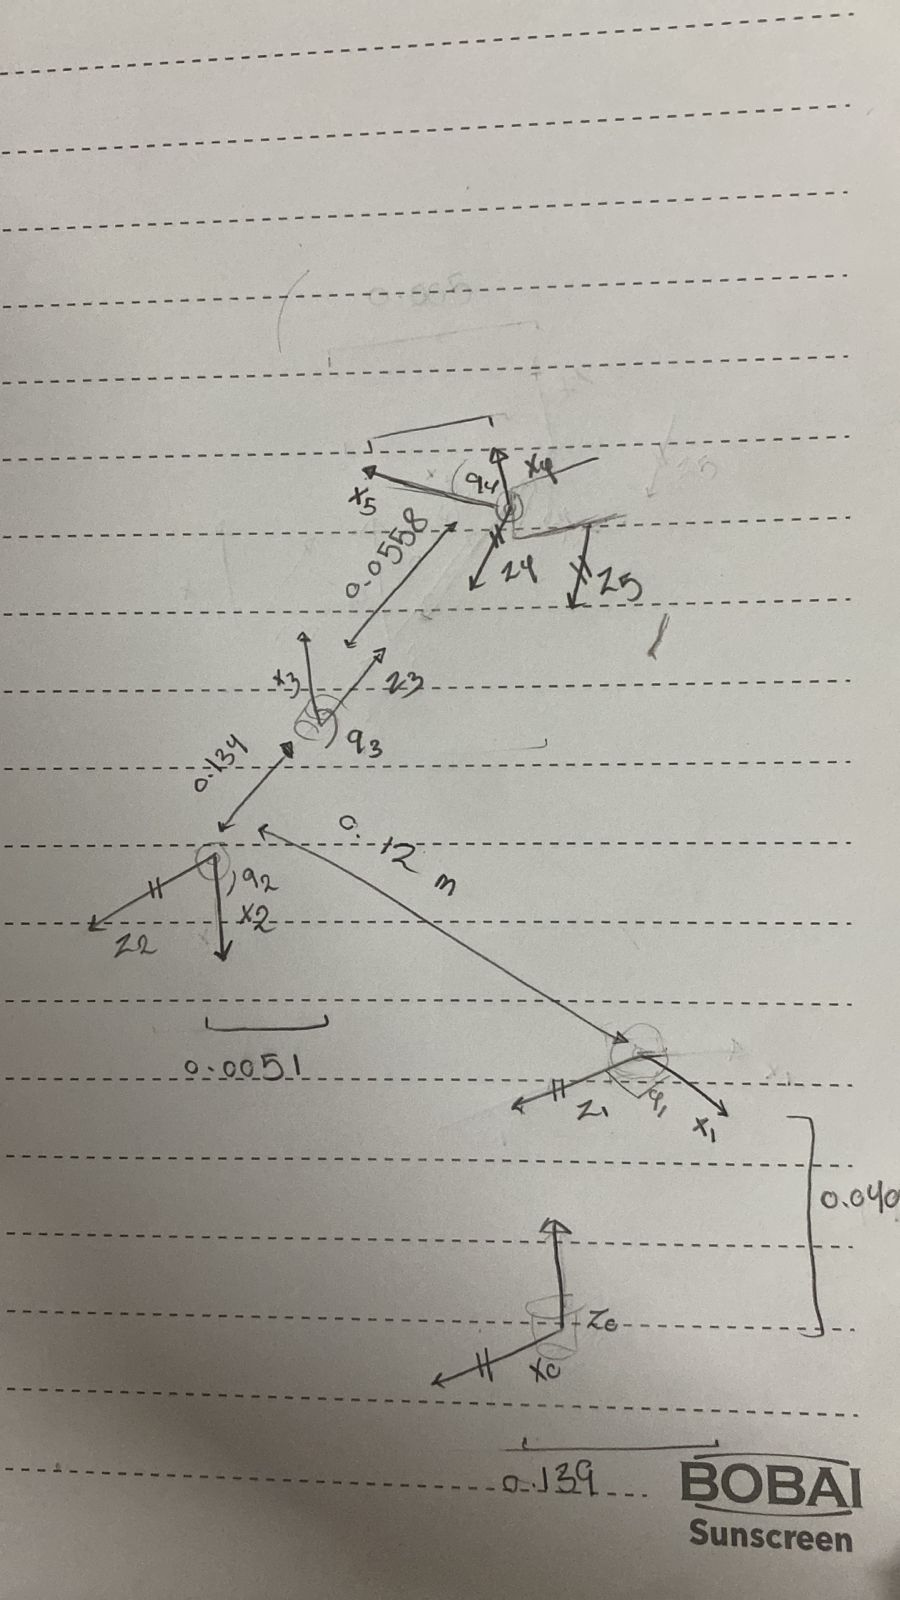 x4
q4
x5
0.0558
z4
z5
x3
z3
q3
0.134
0.12 m
q2
x2
z2
0.0051
z1
q1
x1
0.040
z0
x0
0.139
BOBAI
Sunscreen